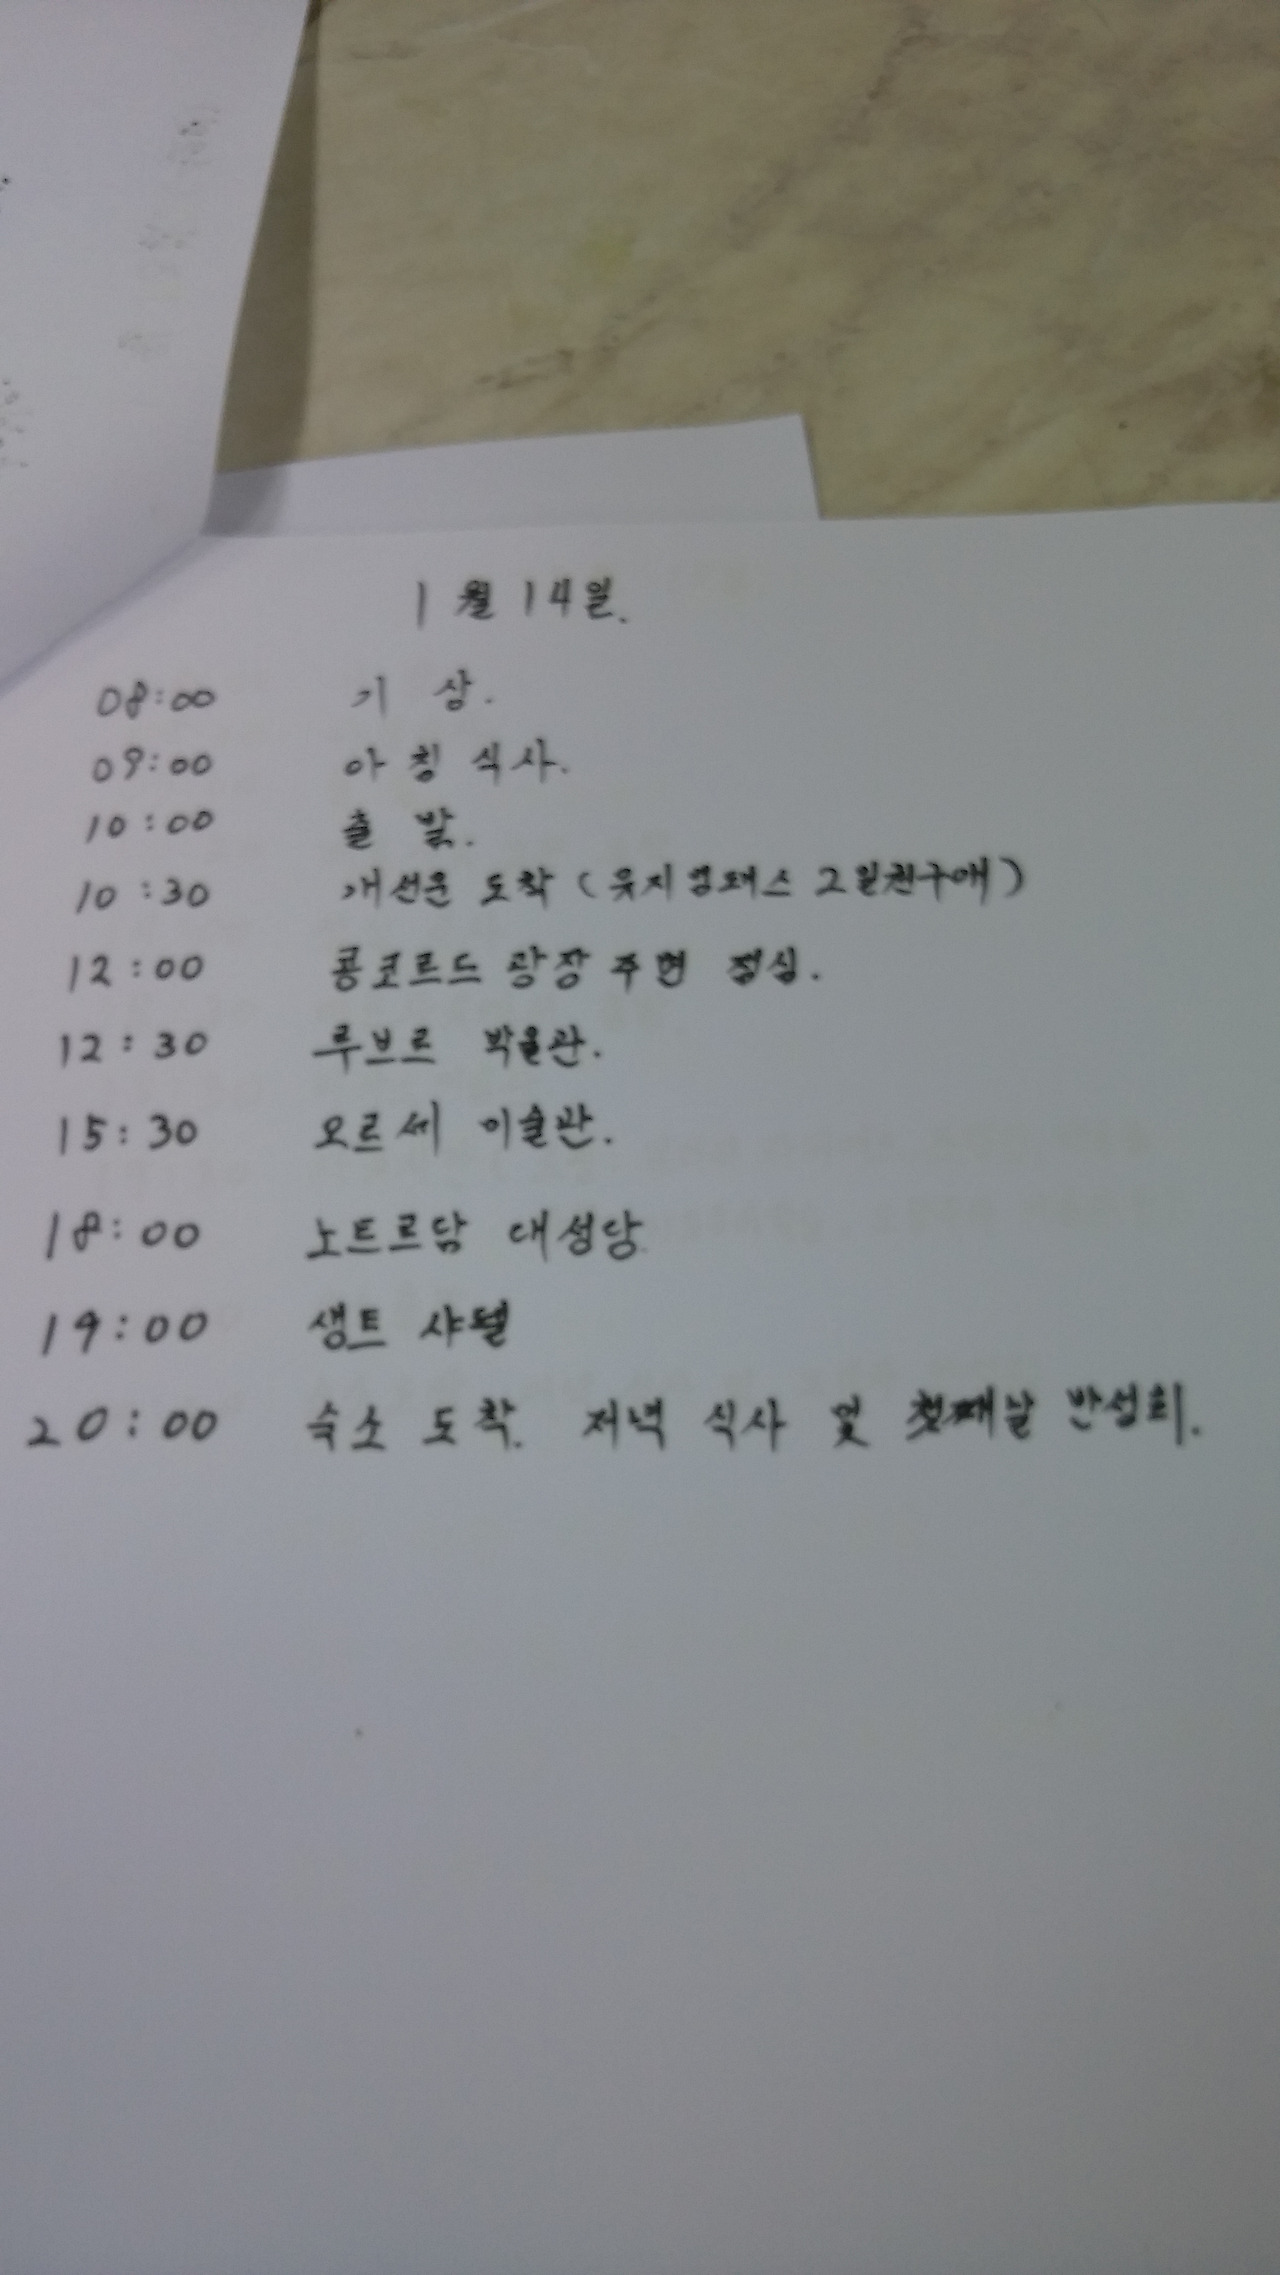 1월 14일.
08:00 기 상.
09:00 아침 식사.
10:00 출 발.
10:30 개선문 도착 (뮤지엄패스 2일권구매)
12:00 콩코르드 광장 주변 점심.
12:30 루브르 박물관.
15:30 오르세 미술관.
18:00 노트르담 대성당
19:00 생트 샤펠
20:00 숙소 도착. 저녁 식사 및 첫째날 반성회.